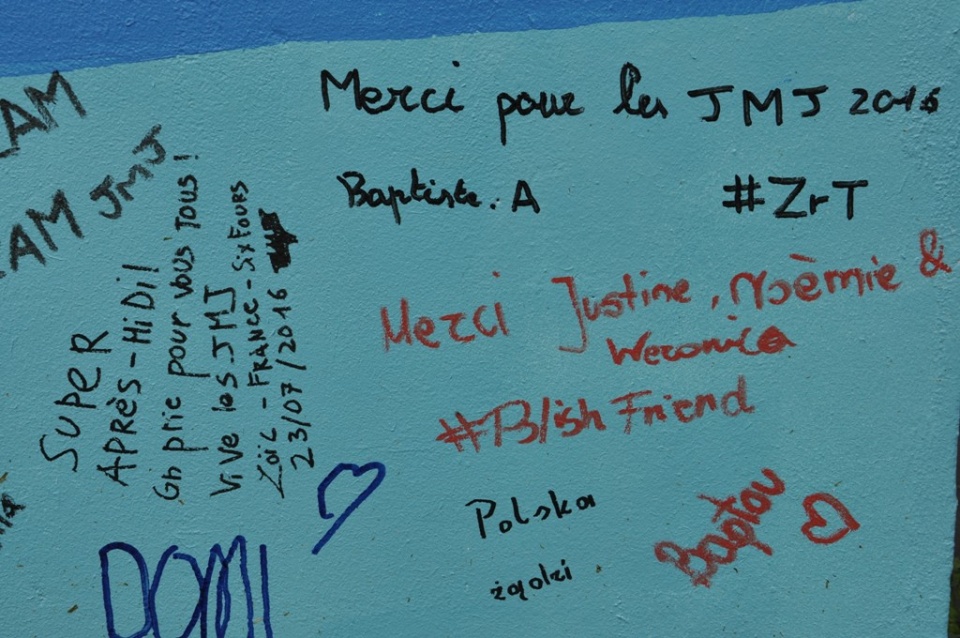 Merci pour les JMJ 2016
Baptiste. A
#ZrT
Merci Justine, Noèmie &
Weronica
#Polish Friend
Polska
Baptou
AM
AM JMJ
SUPER
APRÈS-MIDI!
On prie pour vous TOUS!
Vive les JMJ
Loïc - FRANCE - Six FOURS
23/07/2016
DOMI